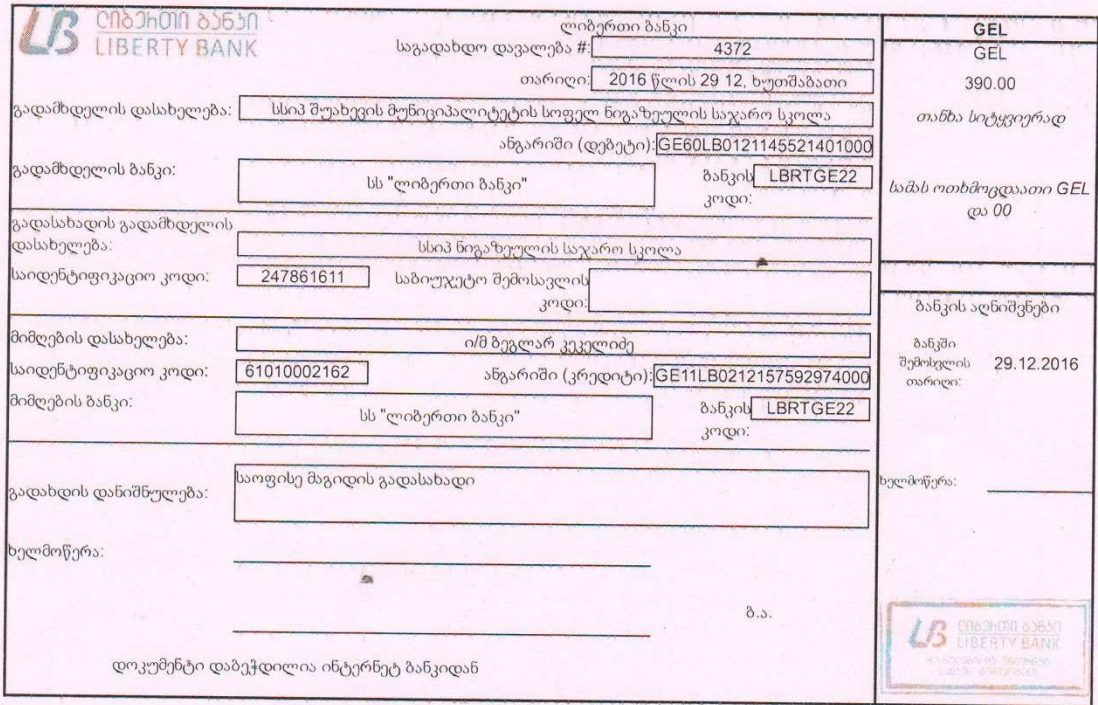 ლიბერთი ბანკი
LIBERTY BANK
ლიბერთი ბანკი
საგადახდო დავალება #: 4372
თარიღი: 2016 წლის 29 12, ხუთშაბათი
გადამხდელის დასახელება: სსიპ შუახევის მუნიციპალიტეტის სოფელ ნიგაზეულის საჯარო სკოლა
ანგარიში (დებეტი): GE60LB0121145521401000
გადამხდელის ბანკი: სს "ლიბერთი ბანკი" ბანკის კოდი: LBRTGE22
გადასახადის გადამხდელის
დასახელება: სსიპ ნიგაზეულის საჯარო სკოლა
საიდენტიფიკაციო კოდი: 247861611 საბიუჯეტო შემოსავლის
კოდი:
მიმღების დასახელება: ი/მ ბეგლარ კეკელიძე
საიდენტიფიკაციო კოდი: 61010002162 ანგარიში (კრედიტი): GE11LB0212157592974000
მიმღების ბანკი: სს "ლიბერთი ბანკი" ბანკის კოდი: LBRTGE22
გადახდის დანიშნულება: საოფისე მაგიდის გადასახადი
ხელმოწერა:
ბ.ა.
დოკუმენტი დაბეჭდილია ინტერნეტ ბანკიდან
GEL
GEL
390.00
თანხა სიტყვიერად
სამას ოთხმოცდაათი GEL
და 00
ბანკის აღნიშვნები
ბანკში
შემოსვლის 29.12.2016
თარიღი:
ხელმოწერა:
ლიბერთი ბანკი
LIBERTY BANK